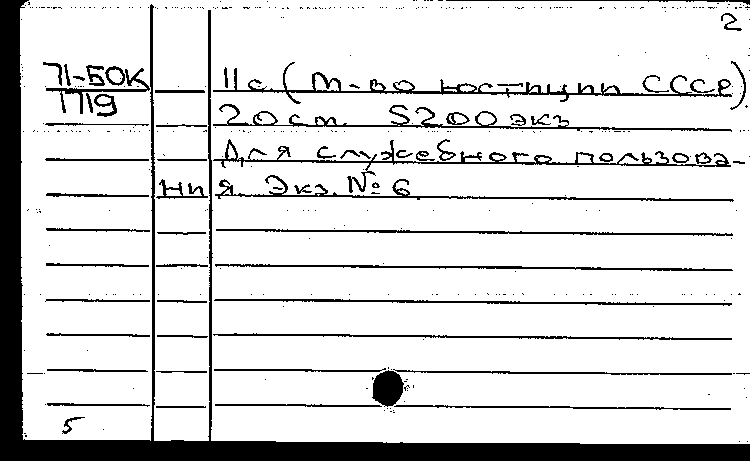 2
71-БОК 11с. (М-во юстиции СССР)
1719 20 см. 5200 экз.
Для служебного пользова-
ния. Экз. № 6
5